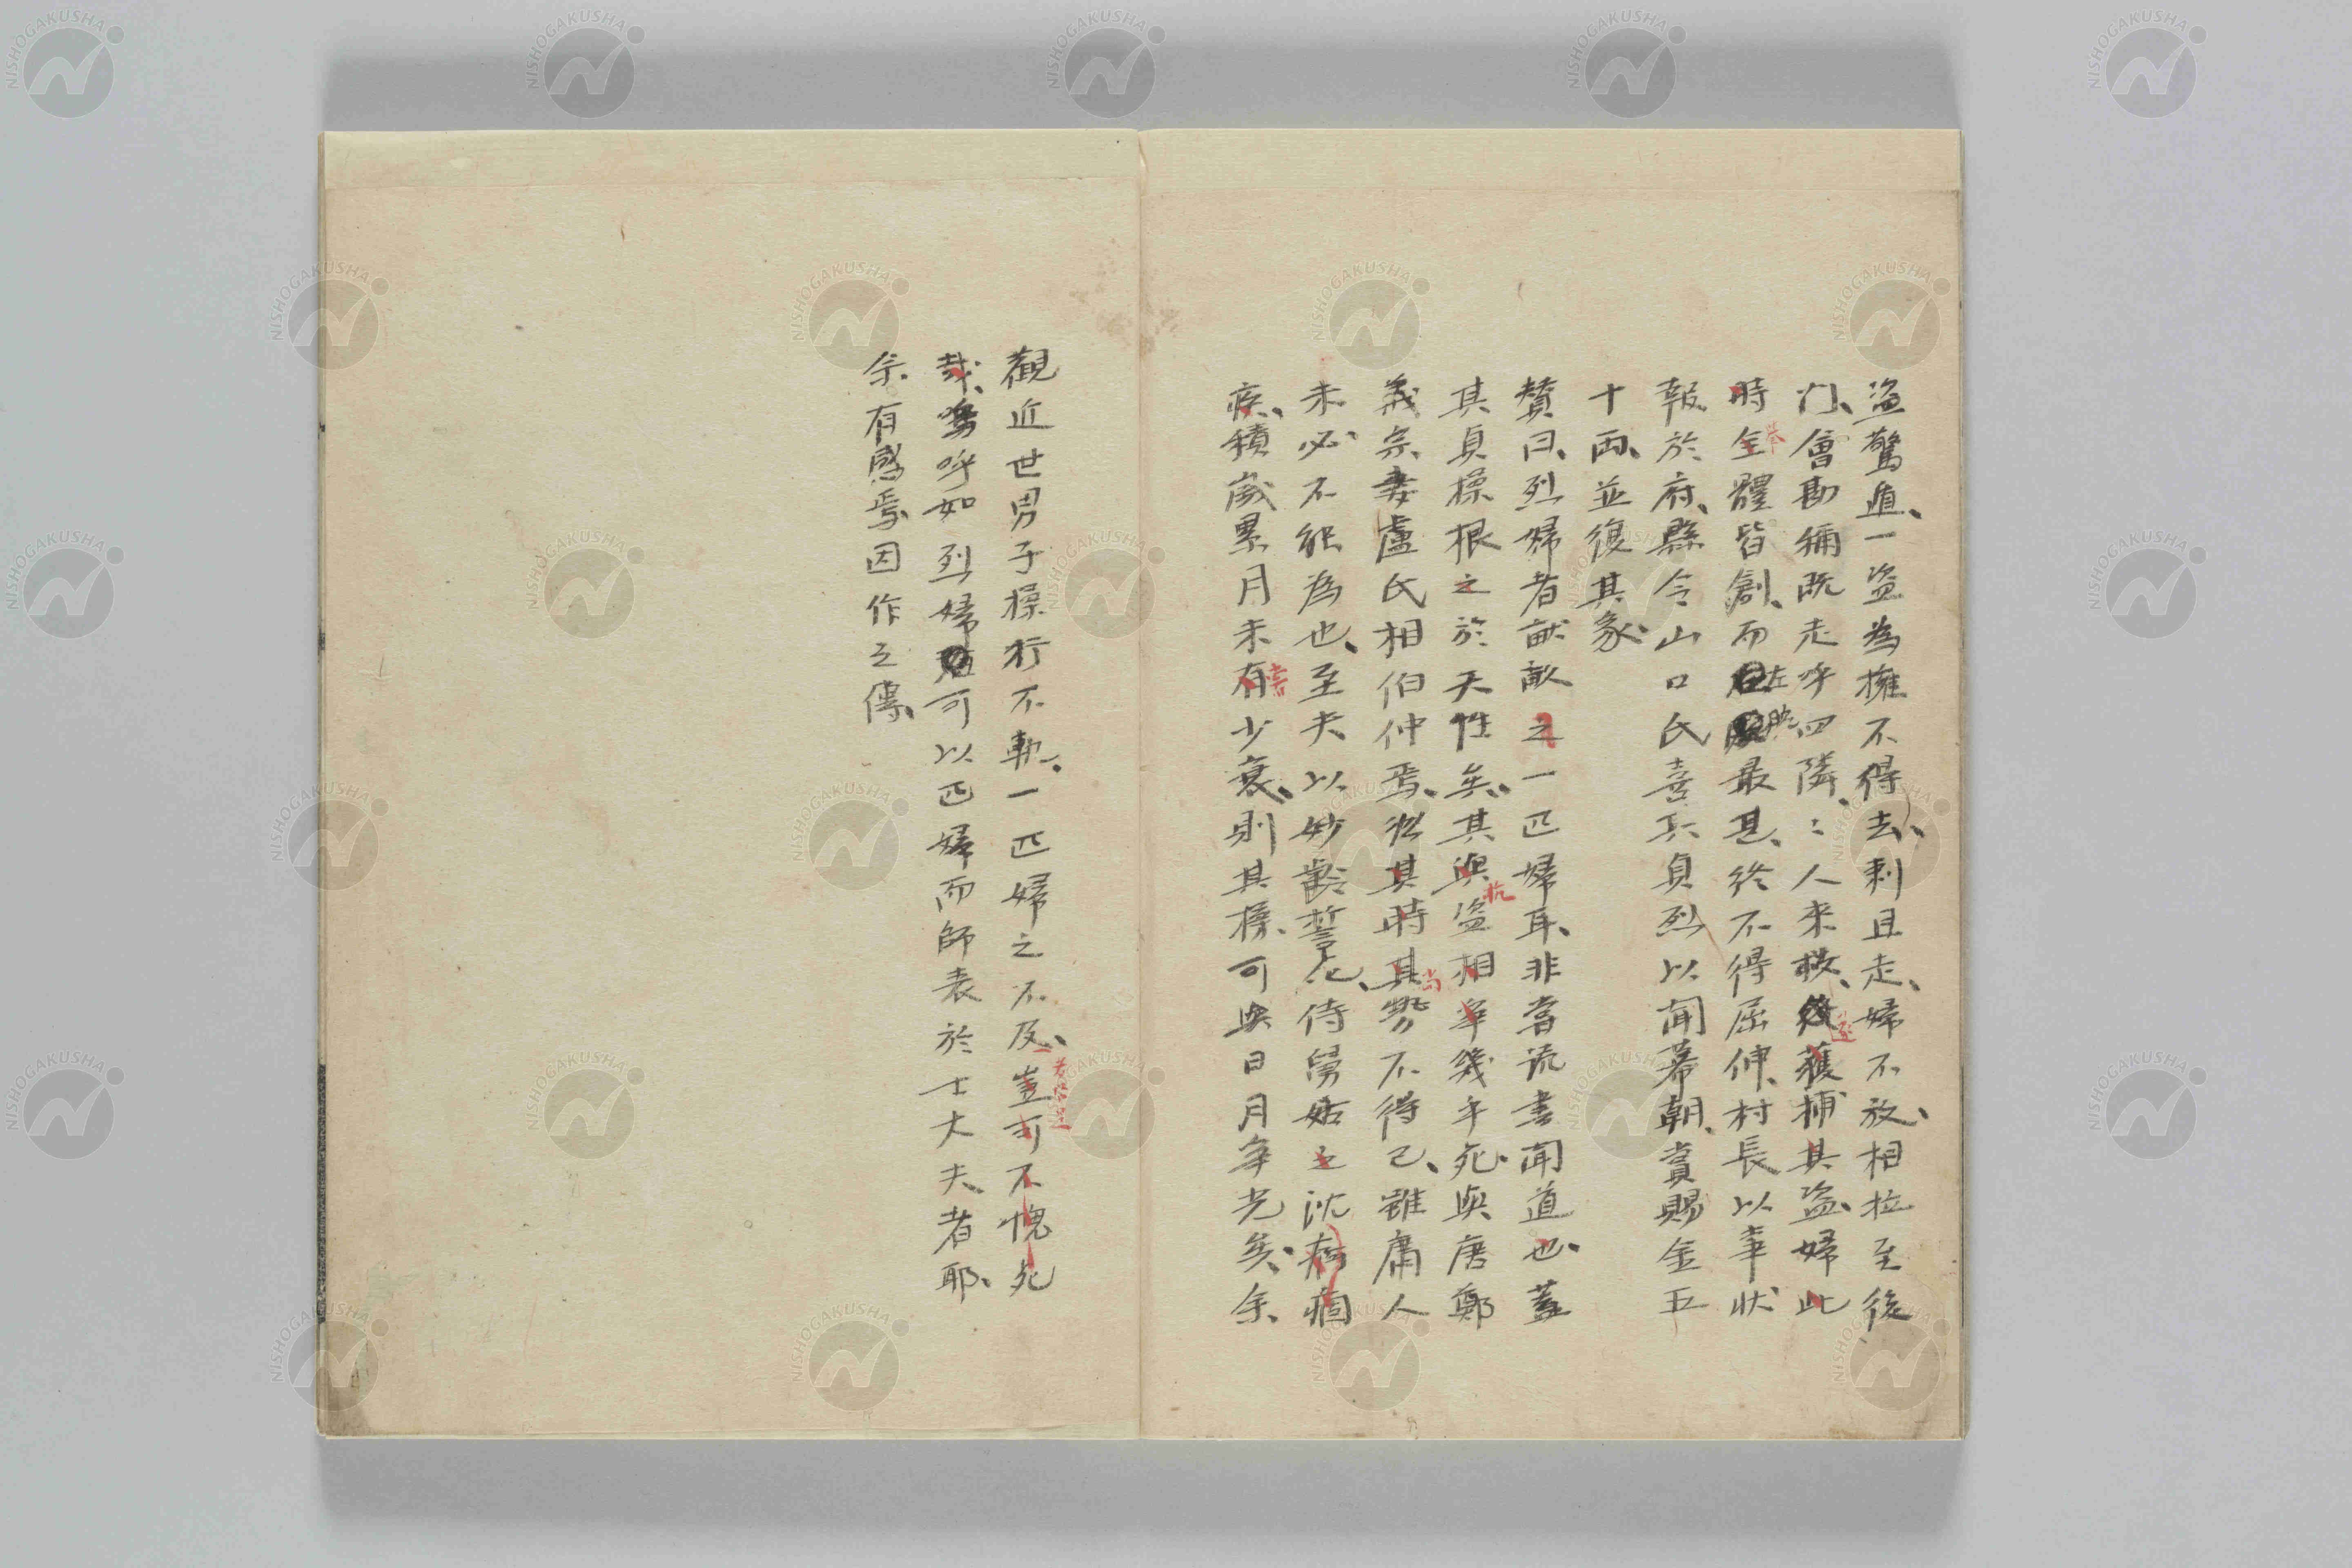 盗驚遁、一盗為擁不得去、刺且走、婦不放、相拉至後
門、會勘彌既走呼四隣、〻人来救、獲捕其盗、婦此
時全體皆創、而左腕最甚、終不得屈伸、村長以事状
報於府、縣令山口氏喜其貞烈以聞幕朝、賞賜金五
十兩、並復其家、
賛曰、烈婦者畎畝之一匹婦耳、非嘗流書聞道也、蓋
其貞操根之於天性矣、其與盗相爭幾乎死、與唐鄭
義宗妻盧氏相伯仲焉、然其時其勢不得已、雖庸人
未必不能為也、至夫以妙齡誓死、侍舅姑之沈痾痼
疾、積歳累月未有少衰、則其操可與日月争光矣、余
觀近世男子操行不軌、一匹婦之不及、豈可不愧死
哉、嗚呼如烈婦可以匹婦而師表於士大夫者耶、
余有感焉、因作之傳、
舉
抗
尚
嘗